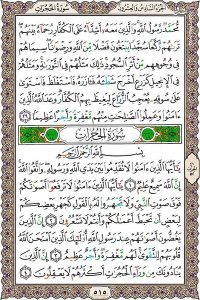 الجزء السادس والعشرون سورة الحجرات
مُّحَمَّدٌ رَّسُولُ ٱللَّهِ وَٱلَّذِينَ مَعَهُۥٓ أَشِدَّآءُ عَلَى ٱلْكُفَّارِ رُحَمَآءُ بَيْنَهُمْ
تَرَىٰهُمْ رُكَّعًا سُجَّدًا يَبْتَغُونَ فَضْلًا مِّنَ ٱللَّهِ وَرِضْوَٰنًا سِيمَاهُمْ
فِى وُجُوهِهِم مِّنْ أَثَرِ ٱلسُّجُودِ ذَٰلِكَ مَثَلُهُمْ فِى ٱلتَّوْرَىٰةِ وَمَثَلُهُمْ
فِى ٱلْإِنجِيلِ كَزَرْعٍ أَخْرَجَ شَطْـَٔهُۥ فَـَٔازَرَهُۥ فَٱسْتَغْلَظَ فَٱسْتَوَىٰ
عَلَىٰ سُوقِهِۦ يُعْجِبُ ٱلزُّرَّاعَ لِيَغِيظَ بِهِمُ ٱلْكُفَّارَ وَعَدَ ٱللَّهُ ٱلَّذِينَ
ءَامَنُوا۟ وَعَمِلُوا۟ ٱلصَّٰلِحَٰتِ مِنْهُم مَّغْفِرَةً وَأَجْرًا عَظِيمًۢا ٢٩
سُورَةُ الْحُجُرَاتِ
بِسْمِ ٱللَّهِ ٱلرَّحْمَٰنِ ٱلرَّحِيمِ
يَٰٓأَيُّهَا ٱلَّذِينَ ءَامَنُوا۟ لَا تُقَدِّمُوا۟ بَيْنَ يَدَىِ ٱللَّهِ وَرَسُولِهِۦ وَٱتَّقُوا۟ ٱللَّهَ
إِنَّ ٱللَّهَ سَمِيعٌ عَلِيمٌ ١ يَٰٓأَيُّهَا ٱلَّذِينَ ءَامَنُوا۟ لَا تَرْفَعُوٓا۟ أَصْوَٰتَكُمْ
فَوْقَ صَوْتِ ٱلنَّبِىِّ وَلَا تَجْهَرُوا۟ لَهُۥ بِٱلْقَوْلِ كَجَهْرِ بَعْضِكُمْ
لِبَعْضٍ أَن تَحْبَطَ أَعْمَٰلُكُمْ وَأَنتُمْ لَا تَشْعُرُونَ ٢ إِنَّ ٱلَّذِينَ
يَغُضُّونَ أَصْوَٰتَهُمْ عِندَ رَسُولِ ٱللَّهِ أُو۟لَٰٓئِكَ ٱلَّذِينَ ٱمْتَحَنَ ٱللَّهُ
قُلُوبَهُمْ لِلتَّقْوَىٰ لَهُم مَّغْفِرَةٌ وَأَجْرٌ عَظِيمٌ ٣ إِنَّ ٱلَّذِينَ
يُنَادُونَكَ مِن وَرَآءِ ٱلْحُجُرَٰتِ أَكْثَرُهُمْ لَا يَعْقِلُونَ ٤
٥١٥